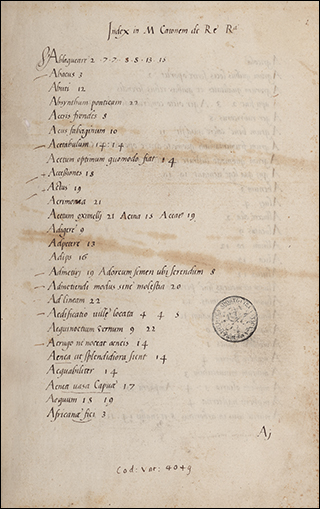 Index in M Catonem de Re Ra
Ablaqueare 2 · 7 · 7 · 8 · 5 · 13 15
Abacus 3
Abuti 12
Absynthium ponticum 22
Aceris frondes 8
Acus 10
Acetabulum 14 · 14
Acetum optimum quomodo fiat 14
Accessiones 18
Actus 19
Acrimonia 21
Acetum 21 Acina 18 Aceae 19
Adigere 9
13
Adips 16
Admetiri 19 Adoreum semen ubi serendum 8
Admetiendi modus sine molestia 20
Ad lineam 22
Aedificatio villę locata 4 4 5
Aequinoctium vernum 9 22
Aerugo ne noceat aeneis 14
Aenea ut splendidiora sient 14
Aequabiliter 14
Aenea uasa Capuę 17
Aequum 18 19
Africanę fici 3
A
Cod: Var: 4049